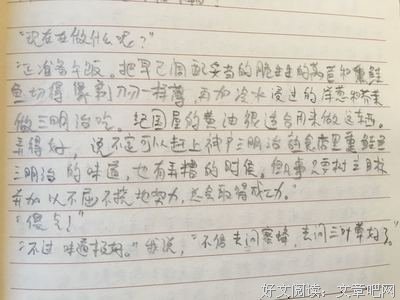 "现在在做什么呢？"
"正准备午饭。把早已调配妥当的脆生生的莴苣和熏鲑
鱼切得像剃刀一样薄，再加冷水浸过的洋葱和芥末
做三明治吃。纪国屋的黄油很适合用来做这东西。
弄得好，说不定可以赶上神户三明治的食店里熏鲑鱼
三明治的味道，也有弄糟的时候。但凡事只要树立目标
并加以不屈不挠地努力，总会取得成功。"
"傻气！"
"不过味道极好。"我说，"不信去问蜜蜂，去问三叶草好了。"
好文阅读：文章吧网